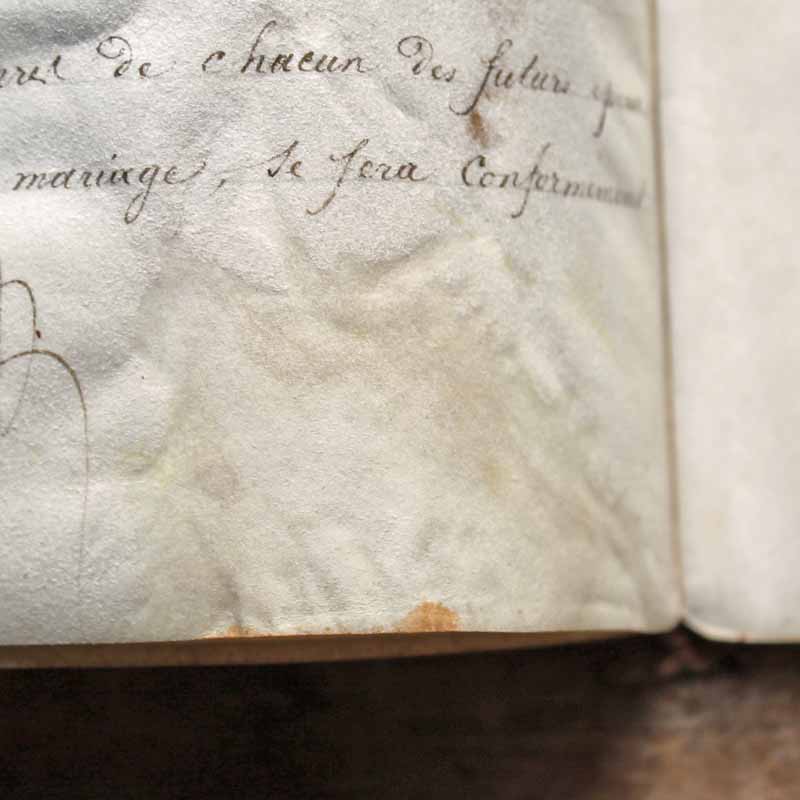 de chacun des futurs époux
mariage, se fera Conformement